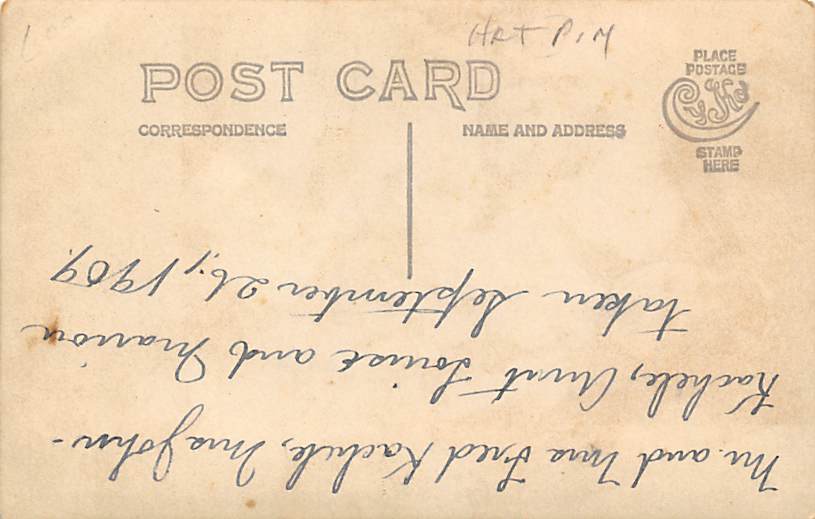 Hat Pin
POST CARD
CORRESPONDENCE
NAME AND ADDRESS
PLACE
POSTAGE
CyKo
STAMP
HERE
M. and Mrs Fred Kachele, Mrs John-
Kachele, Aunt Louise and Marion
taken September 26, 1909.